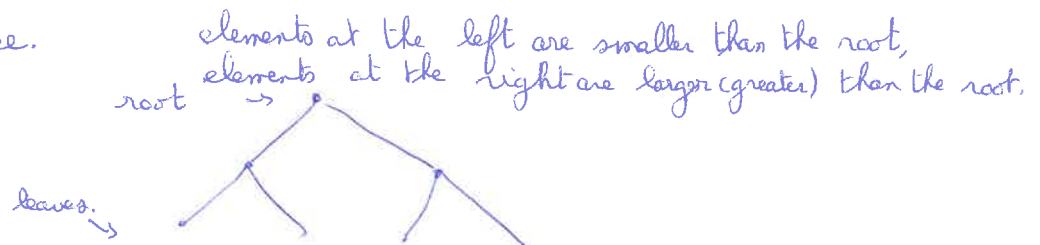 elements at the left are smaller than the root,
elements at the right are larger (greater) than the root.
root
leaves.